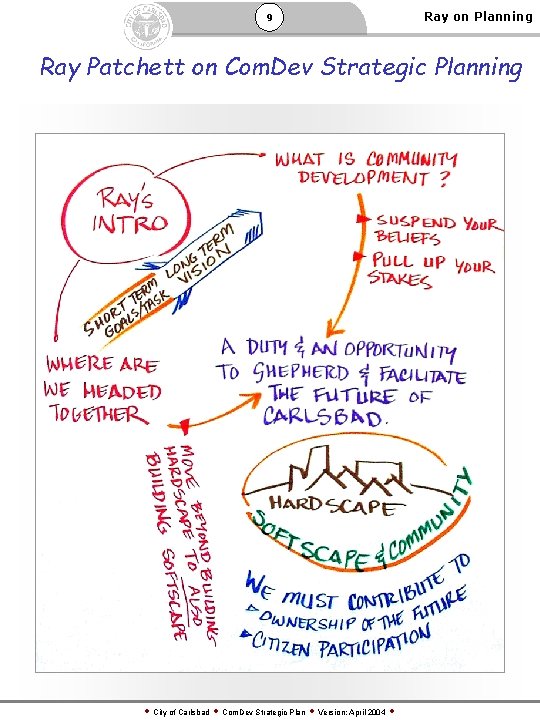 9
Ray on Planning
Ray Patchett on Com.Dev Strategic Planning
RAY'S
INTRO
WHAT IS COMMUNITY
DEVELOPMENT?
SUSPEND YOUR
BELIEFS
PULL UP YOUR
STAKES
LONG TERM
VISION
SHORT TERM
GOALS/TASK
WHERE ARE
WE HEADED
TOGETHER
A DUTY & AN OPPORTUNITY
TO SHEPHERD & FACILITATE
THE FUTURE OF
CARLSBAD.
MOVE BEYOND BUILDING
HARDSCAPE TO ALSO
BUILDING SOFTSCAPE
HARDSCAPE
SOFTSCAPE & COMMUNITY
WE MUST CONTRIBUTE TO
OWNERSHIP OF THE FUTURE
CITIZEN PARTICIPATION
• City of Carlsbad • Com.Dev Strategic Plan • Version: April 2004 •